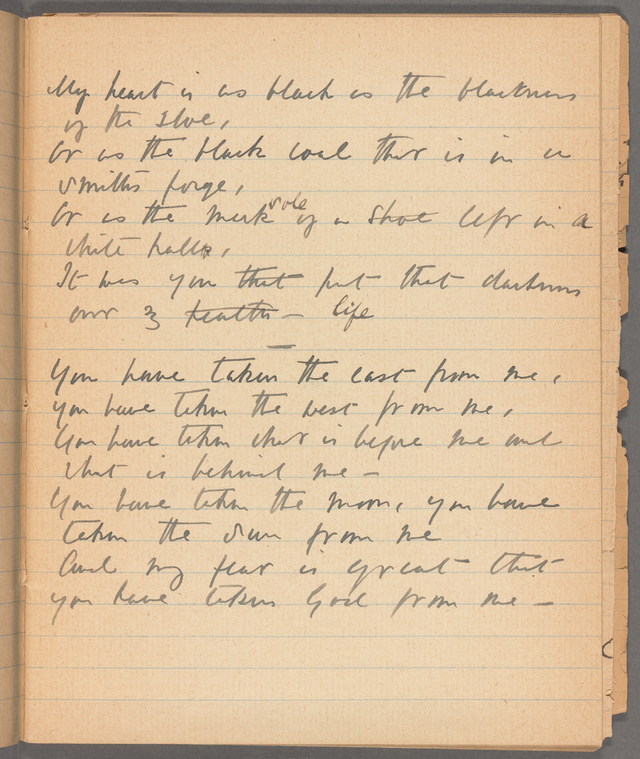 My heart is as black as the blackness
of the sloe,
Or as the black coal that is in a
smiths forge,
Or as the mark sole of a shoe left in a
white halls,
It was you that put that darkness
over my health – life
—
You have taken the east from me,
you have taken the west from me,
You have taken what is before me and
what is behind me –
You have taken the moon, you have
taken the sun from me
And my fear is great that
you have taken God from me –